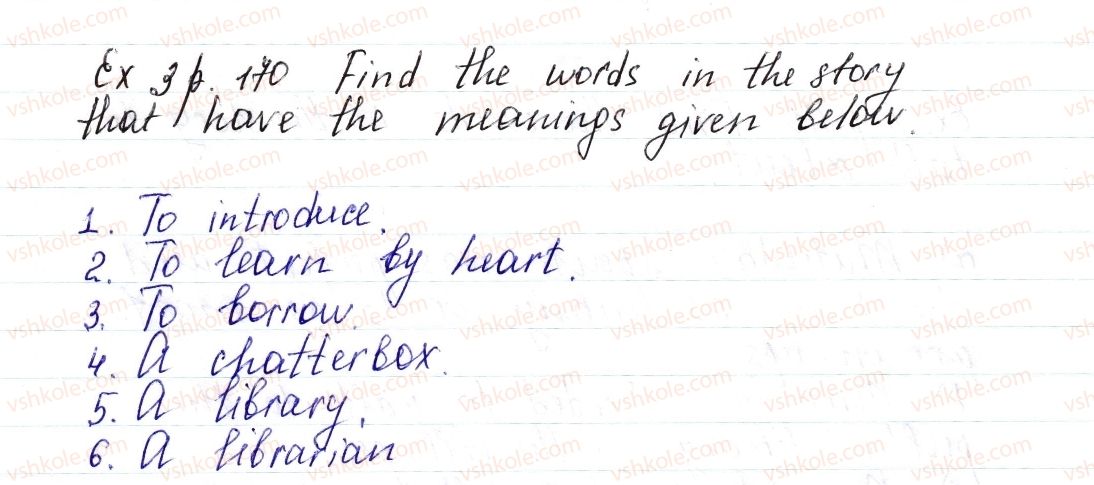 Ex 3 p. 170 Find the words in the story
that have the meanings given below.
1. To introduce.
2. To learn by heart.
3. To borrow.
4. A chatterbox.
5. A library.
6. A librarian